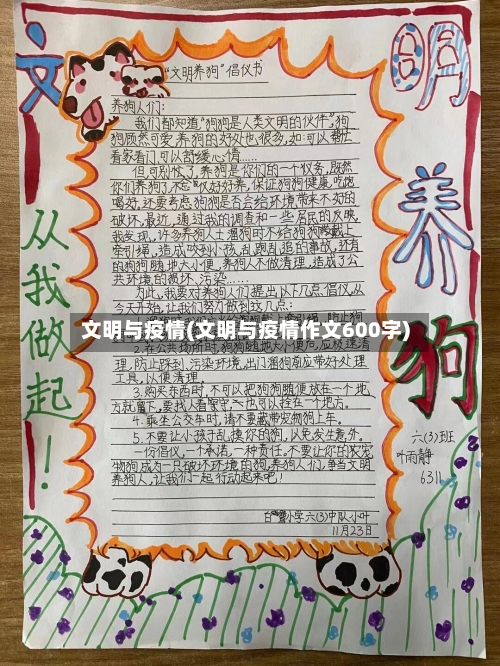 文明养狗
从我做起！
"文明养狗"倡仪书
养狗人们：
我们都知道"狗狗是人类文明的伙伴"狗
狗颐然可爱，养狗的好处也很多，如：可以帮忙
看家看门，可以舒缓心情……
但可别忘了，养狗是你们的一个权务，既然
你们养狗了，不忘"仪好好养，保证狗狗健康，吃饱
喝好，还要考虑狗狗是否会给环境带来不好的
破坏。最近，通过我的调查和一些居民的反映，
我发现，许多养狗人士溜狗时不给狗狗戴上
牵引绳，造成咬到小孩，乱跑乱追的事故，还有
的狗狗随地大小便，养狗人不做清理，造成了公
共环境的损坏、污染……
为此，我要对养狗人们提出以下几点倡仪，从
今天开始，让我们努力做到这几点：
文明与疫情(文明与疫情作文600字)
2.在公共场所时，狗狗随地大小便后，应极速清
理，防止踩到、污染环境，出门溜狗前应带好处理
工具，以便清理。
3.购买东西时，不可以把狗狗随便放在一个地
方就留下，要找人看穿守，也可以拴在一个地方。
4.乘坐公交车时，请不要戴带宠物狗上车。
5.不要让小孩子乱摸你的狗，以免发生意外。
一份倡仪，一个承诺，一种责任，不要让你的家宠
物狗成为一只破坏环境的狗，养狗人们，争当文明
养狗人，让我们一起行动起来吧！
小学六(3)中队小叶
11月23日
六(3)班
叶雨静
6311